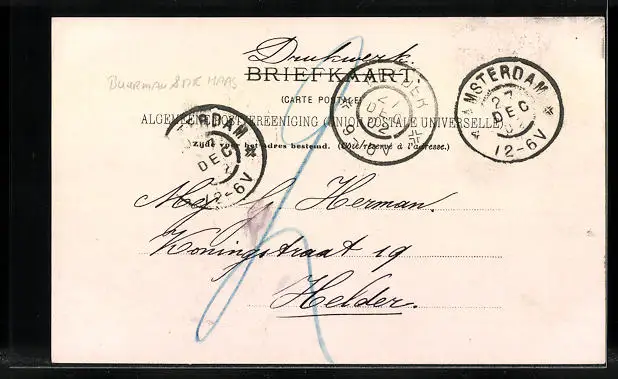 Drukwerk.
BRIEFKAART
(CARTE POSTALE)
ALGEMEENE POSTVEREENIGING (UNION POSTALE UNIVERSELLE)
Zijde voor het adres bestemd. (Côté réservé à l'adresse.)
AMSTERDAM
27
DEC
12-6V
AMSTERDAM
DEC
12-6V
HELDER
DEC
Herman.
Koningstraat 19
Helder.